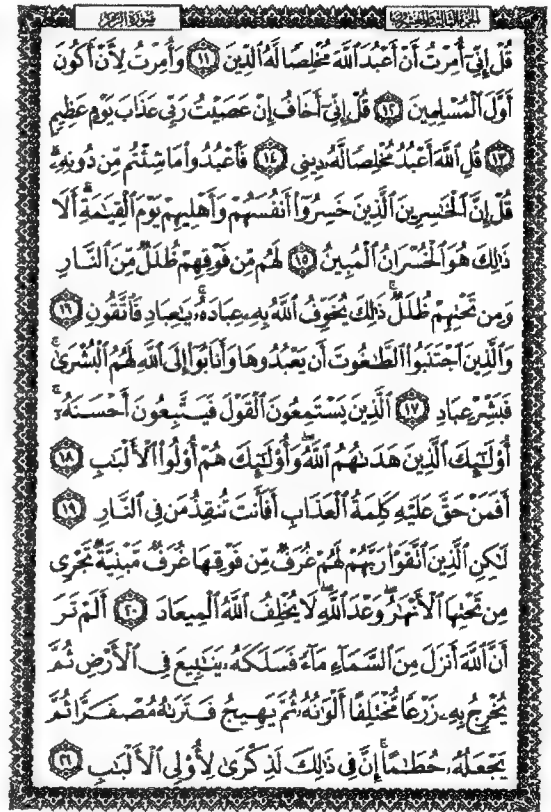 سُورَةُ الزُّمَرِ
الجزء الثالث والعشرون
قُلْ إِنِّيٓ أُمِرْتُ أَنْ أَعْبُدَ ٱللَّهَ مُخْلِصًا لَّهُ ٱلدِّينَ ١١ وَأُمِرْتُ لِأَنْ أَكُونَ
أَوَّلَ ٱلْمُسْلِمِينَ ١٢ قُلْ إِنِّيٓ أَخَافُ إِنْ عَصَيْتُ رَبِّي عَذَابَ يَوْمٍ عَظِيمٍ
١٣ قُلِ ٱللَّهَ أَعْبُدُ مُخْلِصًا لَّهُۥ دِينِي ١٤ فَٱعْبُدُوا۟ مَا شِئْتُم مِّن دُونِهِۦۗ
قُلْ إِنَّ ٱلْخَٰسِرِينَ ٱلَّذِينَ خَسِرُوٓا۟ أَنفُسَهُمْ وَأَهْلِيهِمْ يَوْمَ ٱلْقِيَٰمَةِۗ أَلَا
ذَٰلِكَ هُوَ ٱلْخُسْرَانُ ٱلْمُبِينُ ١٥ لَهُم مِّن فَوْقِهِمْ ظُلَلٌ مِّنَ ٱلنَّارِ
وَمِن تَحْتِهِمْ ظُلَلٌۚ ذَٰلِكَ يُخَوِّفُ ٱللَّهُ بِهِۦ عِبَادَهُۥۚ يَٰعِبَادِ فَٱتَّقُونِ ١٦
وَٱلَّذِينَ ٱجْتَنَبُوا۟ ٱلطَّٰغُوتَ أَن يَعْبُدُوهَا وَأَنَابُوٓا۟ إِلَى ٱللَّهِ لَهُمُ ٱلْبُشْرَىٰۚ
فَبَشِّرْ عِبَادِ ١٧ ٱلَّذِينَ يَسْتَمِعُونَ ٱلْقَوْلَ فَيَتَّبِعُونَ أَحْسَنَهُۥٓۚ
أُو۟لَٰٓئِكَ ٱلَّذِينَ هَدَىٰهُمُ ٱللَّهُۖ وَأُو۟لَٰٓئِكَ هُمْ أُو۟لُوا۟ ٱلْأَلْبَٰبِ ١٨
أَفَمَنْ حَقَّ عَلَيْهِ كَلِمَةُ ٱلْعَذَابِ أَفَأَنتَ تُنقِذُ مَن فِي ٱلنَّارِ ١٩
لَٰكِنِ ٱلَّذِينَ ٱتَّقَوْا۟ رَبَّهُمْ لَهُمْ غُرَفٌ مِّن فَوْقِهَا غُرَفٌ مَّبْنِيَّةٌ تَجْرِي
مِن تَحْتِهَا ٱلْأَنْهَٰرُۖ وَعْدَ ٱللَّهِۖ لَا يُخْلِفُ ٱللَّهُ ٱلْمِيعَادَ ٢٠ أَلَمْ تَرَ
أَنَّ ٱللَّهَ أَنزَلَ مِنَ ٱلسَّمَآءِ مَآءً فَسَلَكَهُۥ يَنَٰبِيعَ فِي ٱلْأَرْضِ ثُمَّ
يُخْرِجُ بِهِۦ زَرْعًا مُّخْتَلِفًا أَلْوَٰنُهُۥ ثُمَّ يَهِيجُ فَتَرَىٰهُ مُصْفَرًّا ثُمَّ
يَجْعَلُهُۥ حُطَٰمًاۚ إِنَّ فِي ذَٰلِكَ لَذِكْرَىٰ لِأُو۟لِي ٱلْأَلْبَٰبِ ٢١